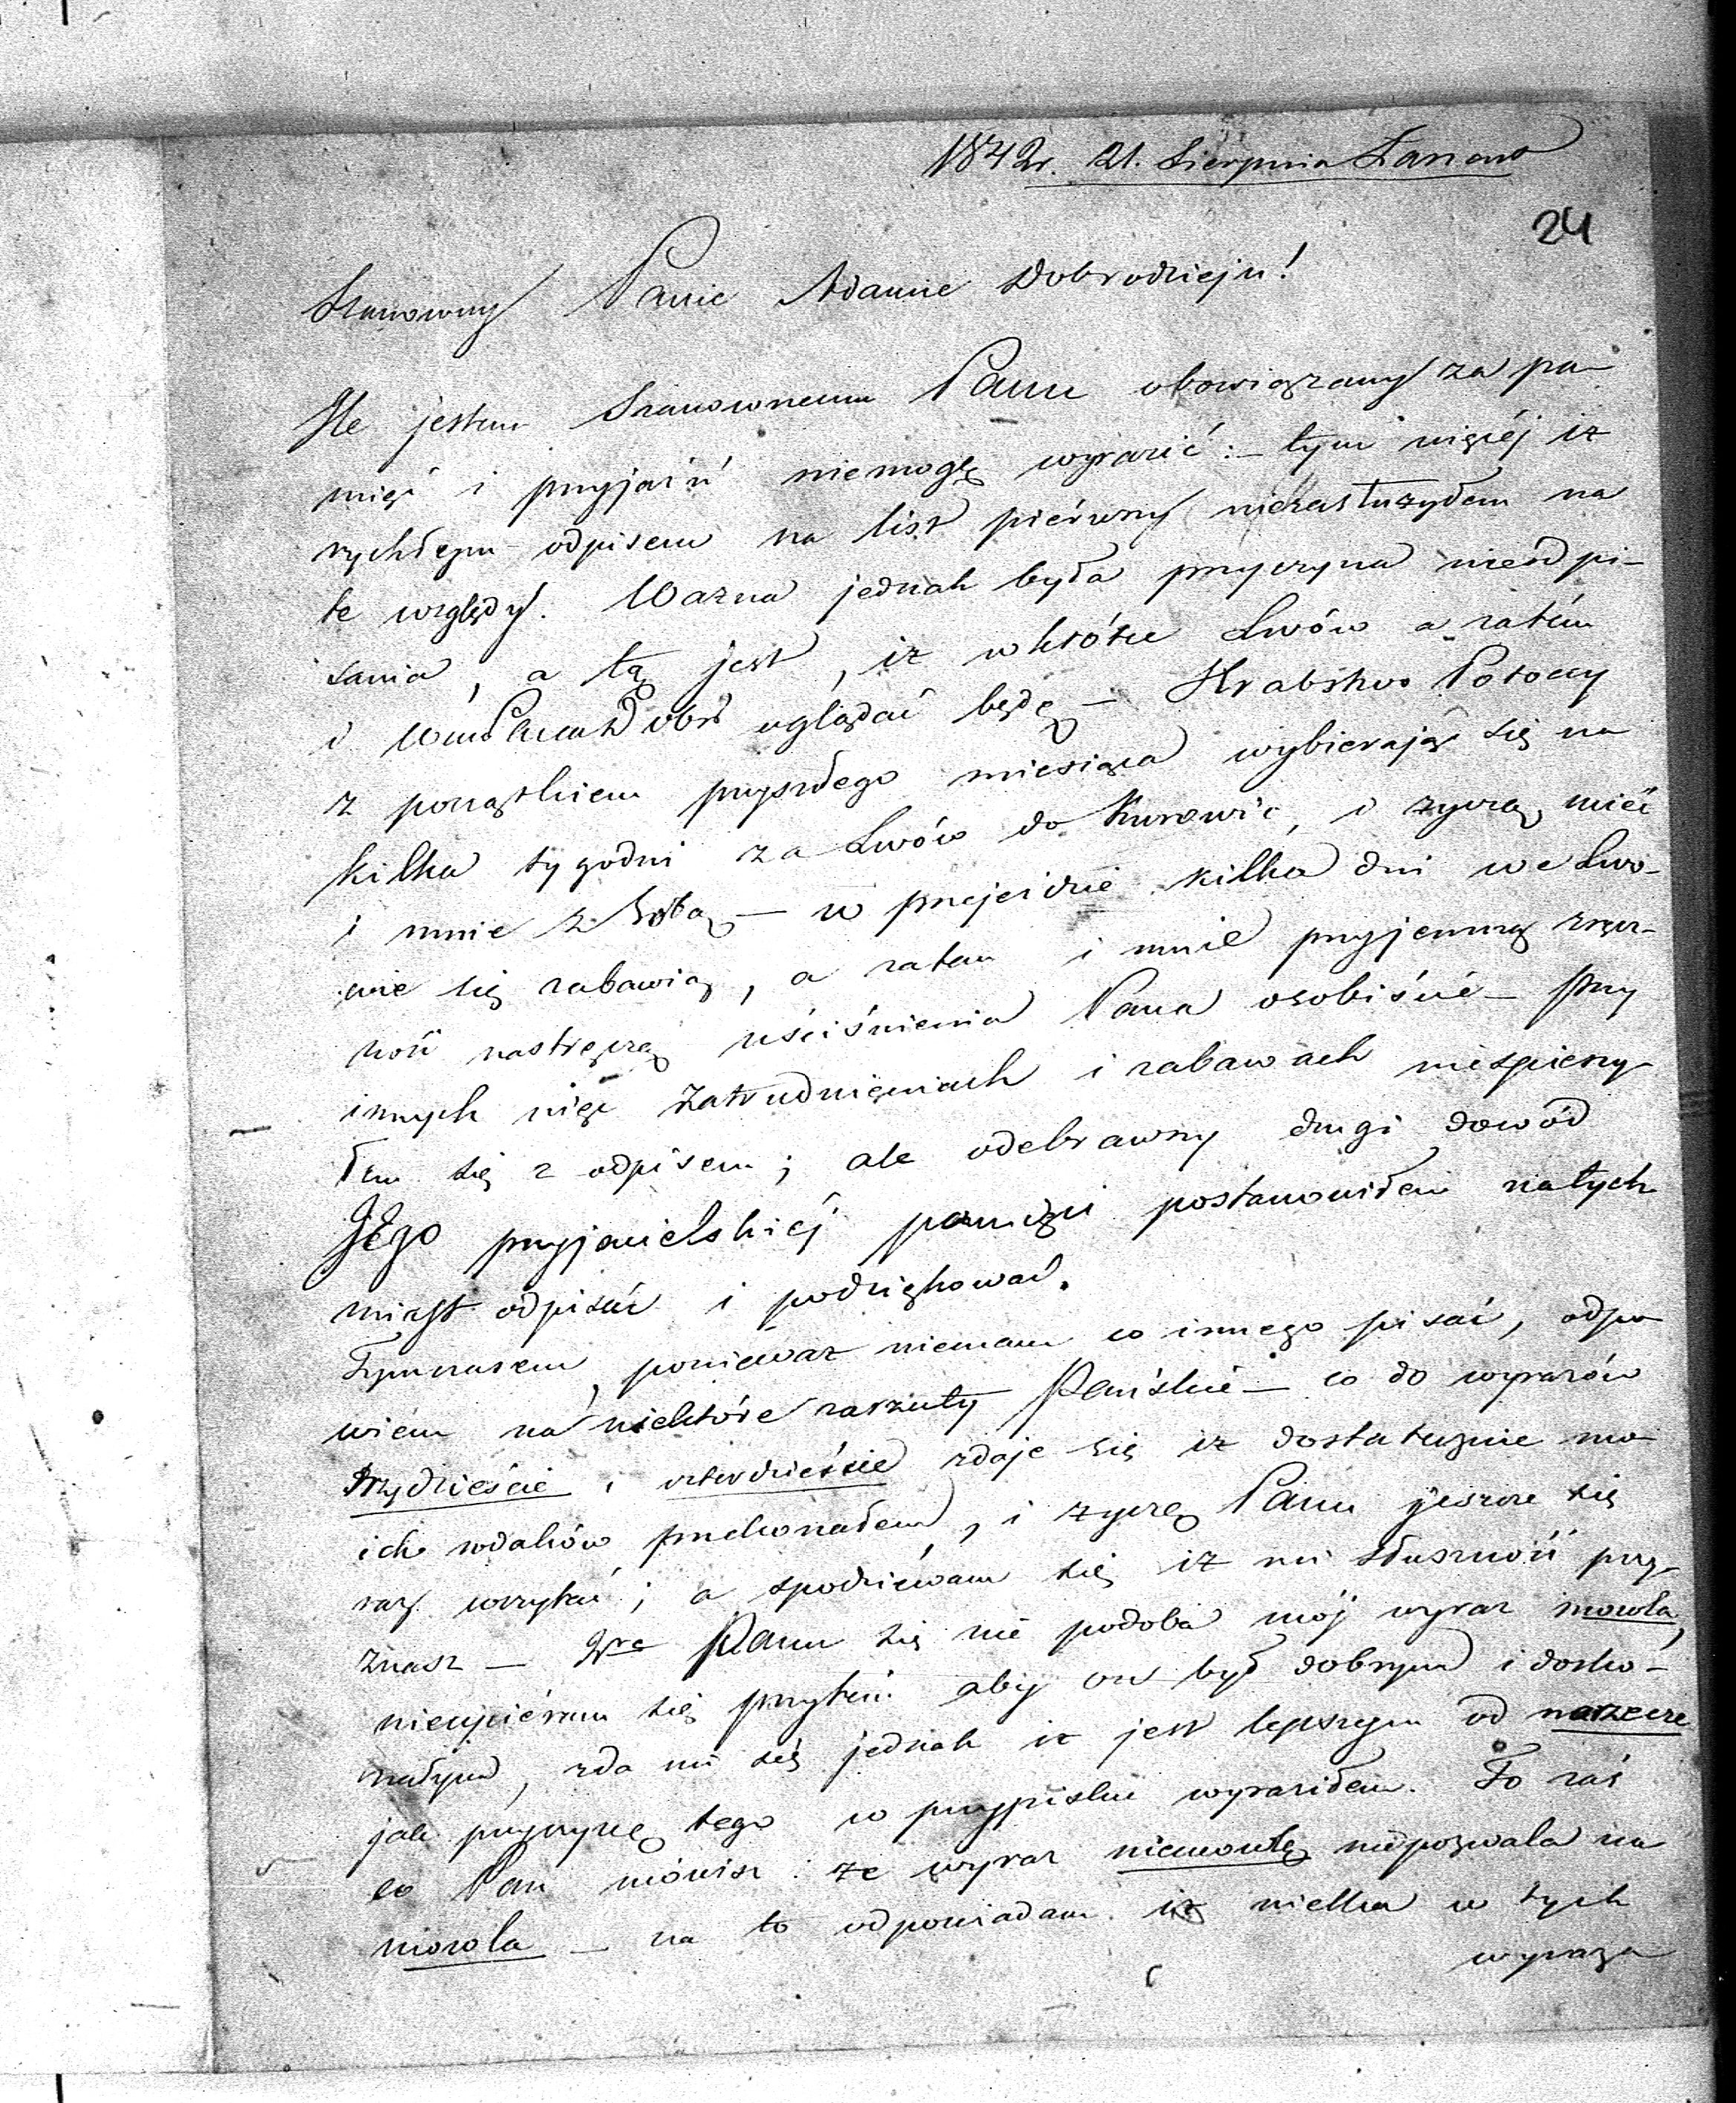 1842r. 21. Sierpnia Łańcut
24
Szanowny Panie Adamie Dobrodzieju!
Ile jestem Szanownemu Panu obowiązany za pa-
mięć i przyjaźń niemogę wyrazić: – tym więcéj iż
rychłym odpisem na list piérwszy niezasłużyłem na
te względy. Ważna jednak była przyczyna nieodpi-
sania, a tą jest, iż wkrótce Lwów a zatém
i WmPana Dobr oglądać będę – Hrabstwo Potoccy
z początkiem przyszłego miesiąca wybierają się na
kilka tygodni za Lwów do Kurowic, i życzą mieć
i mnie z sobą – w przejeździe kilka dni we Lwo-
wie się zabawią, a zatem i mnie przyjemną zręcz-
ność nastręczą uściśnienia Pana osobiście – przy
innych więc zatrudnieniach i zabawach nieśpieszy-
łem się z odpisem; ale odebrawszy drugi dowód
JEgo przyjacielskiéj pamięci postanowiłem natych
miast odpisać i podziękować.
Tymczasem, ponieważ niemam co innego pisać, odpo
wiem na niektóre zarzuty Pańskie – co do wyrazów
trzydzieście i czterdzieście zdaje się iż dostatecznie mo
ich rodaków przekonałem, i życzę Panu jeszcze się
raz wczytać; a spodziéwam się iż mi słuszność przy-
znasz – 2re Panu się nie podoba mój wyraz mowla,
nieupiéram się przytém aby on był dobrym i dosko-
nałym, zda mi się jednak iż jest lepszym od narzecze
jak przyczynę tego w przypisku wyraziłem. To zaś
co Pan mówisz: że wyraz niemowlę niepozwala na
mowla – na to odpowiadam iż wielka w tych
wyraza